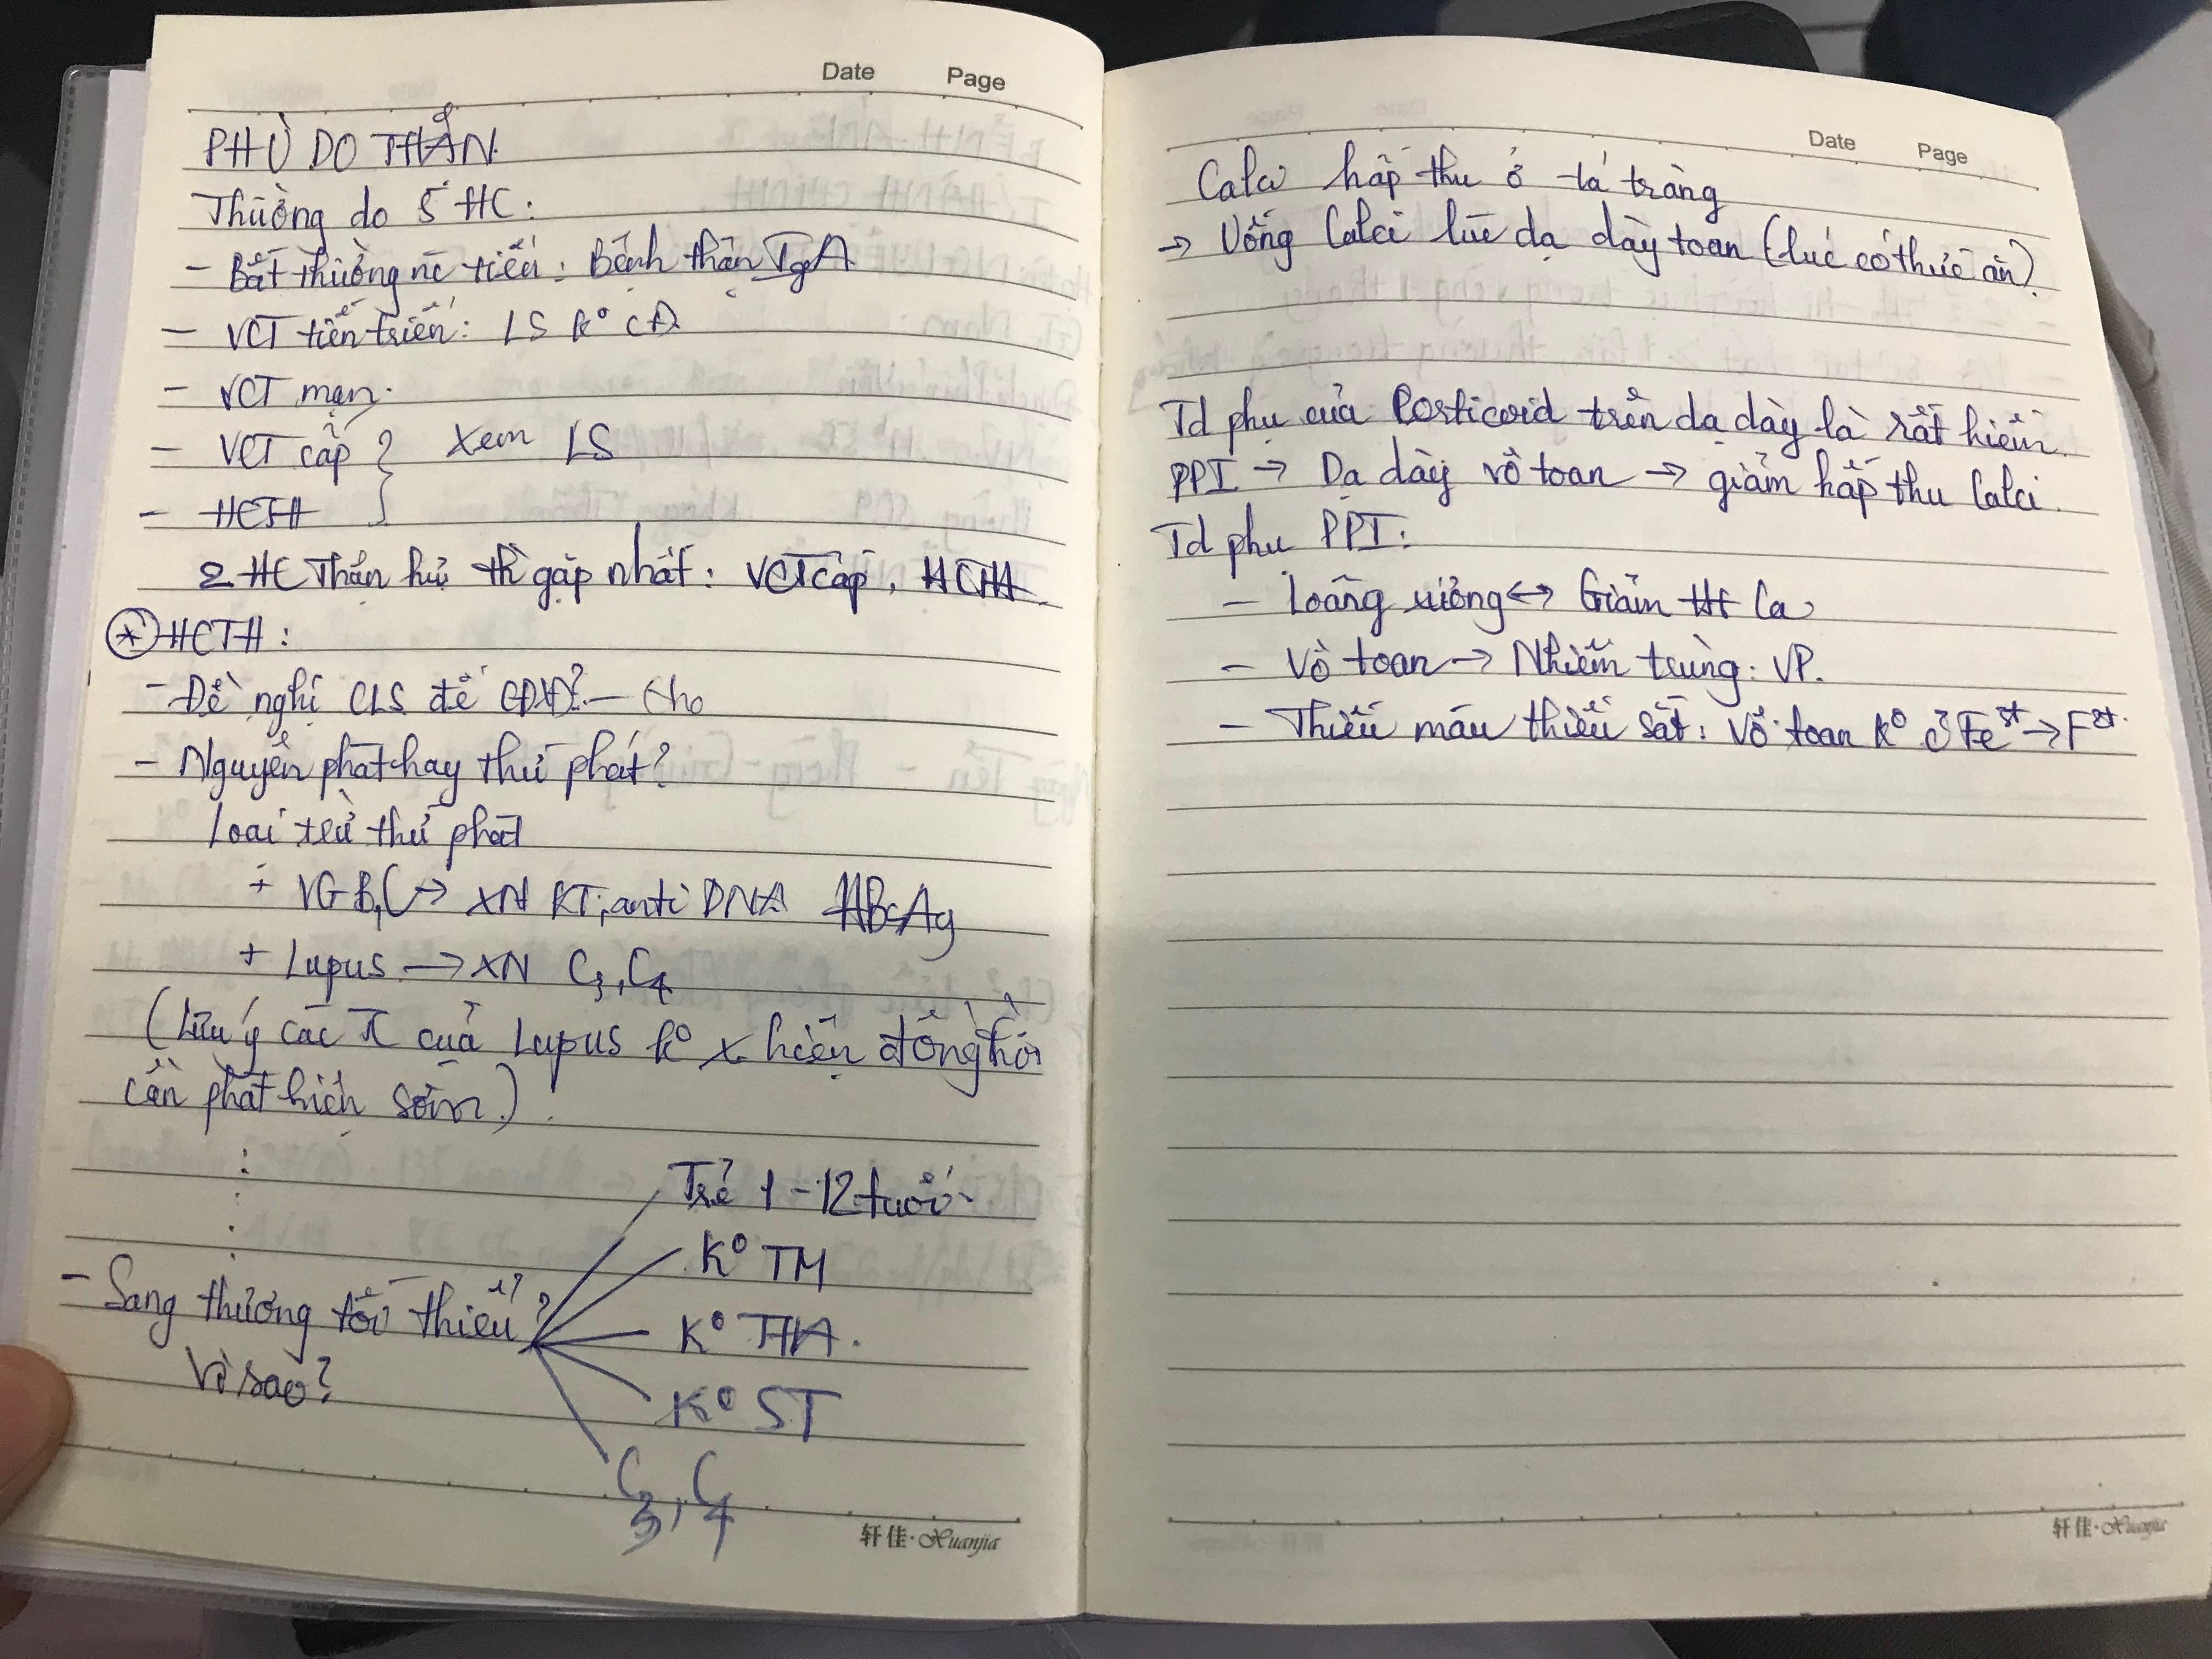 Date Page
PHÙ DO THẬN
Thường do 5 HC:
- Bất thường nc tiểu: Bệnh thận IgA
- VCT tiến triển: LS k° CĐ
- VCT mạn.
- VCT cấp } Xem LS
- HCTH
2 HC Thận hư thì gặp nhất: VCT cấp, HCTH.
* HCTH:
- Đề nghị CLS để CĐXĐ? - Cho
- Nguyên phát hay thứ phát?
Loại trừ thứ phát
+ VG B, C → XN KT, anti DNA HBsAg
+ Lupus → XN C3, C4
(Lưu ý các TC của Lupus k° x hiện đồng thời
cần phát hiện sớm).
- Sang thương tối thiểu?
Vì sao?
Trẻ 1-12 tuổi.
K° TM
K° THA.
K° ST
C3, C4
轩佳·Xuanjia
Date Page
Calci hấp thu ở tá tràng
→ Uống Calci lúc dạ dày toan (lúc có thức ăn).
Td phụ của Corticoid trên dạ dày là rất hiếm.
PPI → Dạ dày vô toan → giảm hấp thu Calci.
Td phụ PPI:
- Loãng xương ↔ Giảm Ht Ca
- Vô toan → Nhiễm trùng: VP.
- Thiếu máu thiếu sắt: Vô toan k°
轩佳·Xuanjia